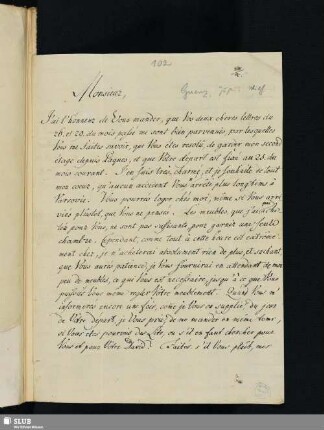 102
Monsieur,
J'ai l'honneur de Vous mander, que Vos deux cheres lettres du
26. et 29. du mois passé me sont bien parvenues, par lesquelles
Vous me faites savoir, que Vous êtes resolu de garder mon second
etage depuis Pâques, et que Votre depart est fixé au 23. du
mois courant. J'en suis tres charmé, et je souhaite de tout
mon coeur, qu'aucun accident Vous arrête plus longtems à
Varsovie. Vous pourrez loger chez moi, même si Vous arri-
viez plustot, que Vous ne pensez. Les meubles que j'ai
pour Vous, ne sont pas suffisants pour garnir une seule
chambre. Cependant, comme tout à cette heure est extreme-
ment cher, je n'acheterai absolument rien de plus, et sachant,
que Vous aurez patience, je Vous fournirai en attendant de mon
peu de meubles, ce que Vous est necessaire, jusqu'à ce que Vous
puissiez Vous même regler Votre meublement. Quand Vous m'
informerez encore une fois, come je Vous en supplie, du jour
de Votre depart, je Vous prie, de me mander en même tems,
si Vous êtes pourvus des Lits, ou s'il en faut chercher pour
Vous et pour Votre David? Faites, s'il Vous plait, mes
SLUB